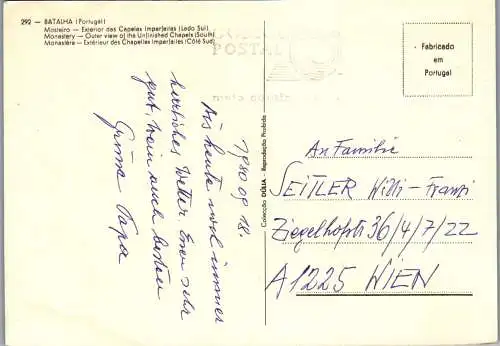 292 — BATALHA (Portugal)
Mosteiro — Exterior das Capelas Imperfeitas (Lado Sul)
Monastery — Outer view of the Unfinished Chapels (South)
Monastère — Extérieur des Chapelles Imperfaites (Côté Sud)
POSTAL
Fabricado
em
Portugal
1980.09.18.
Bis heute noch immer
herrliches Wetter. Essen sehr
gut, Wein auch bestens
Grüsse Papa
Colecção DÚLIA - Reprodução Proibida
An Familie
SEITLER Willi - Franzi
Ziegelhofstr 36/4/7/22
A1225 WIEN